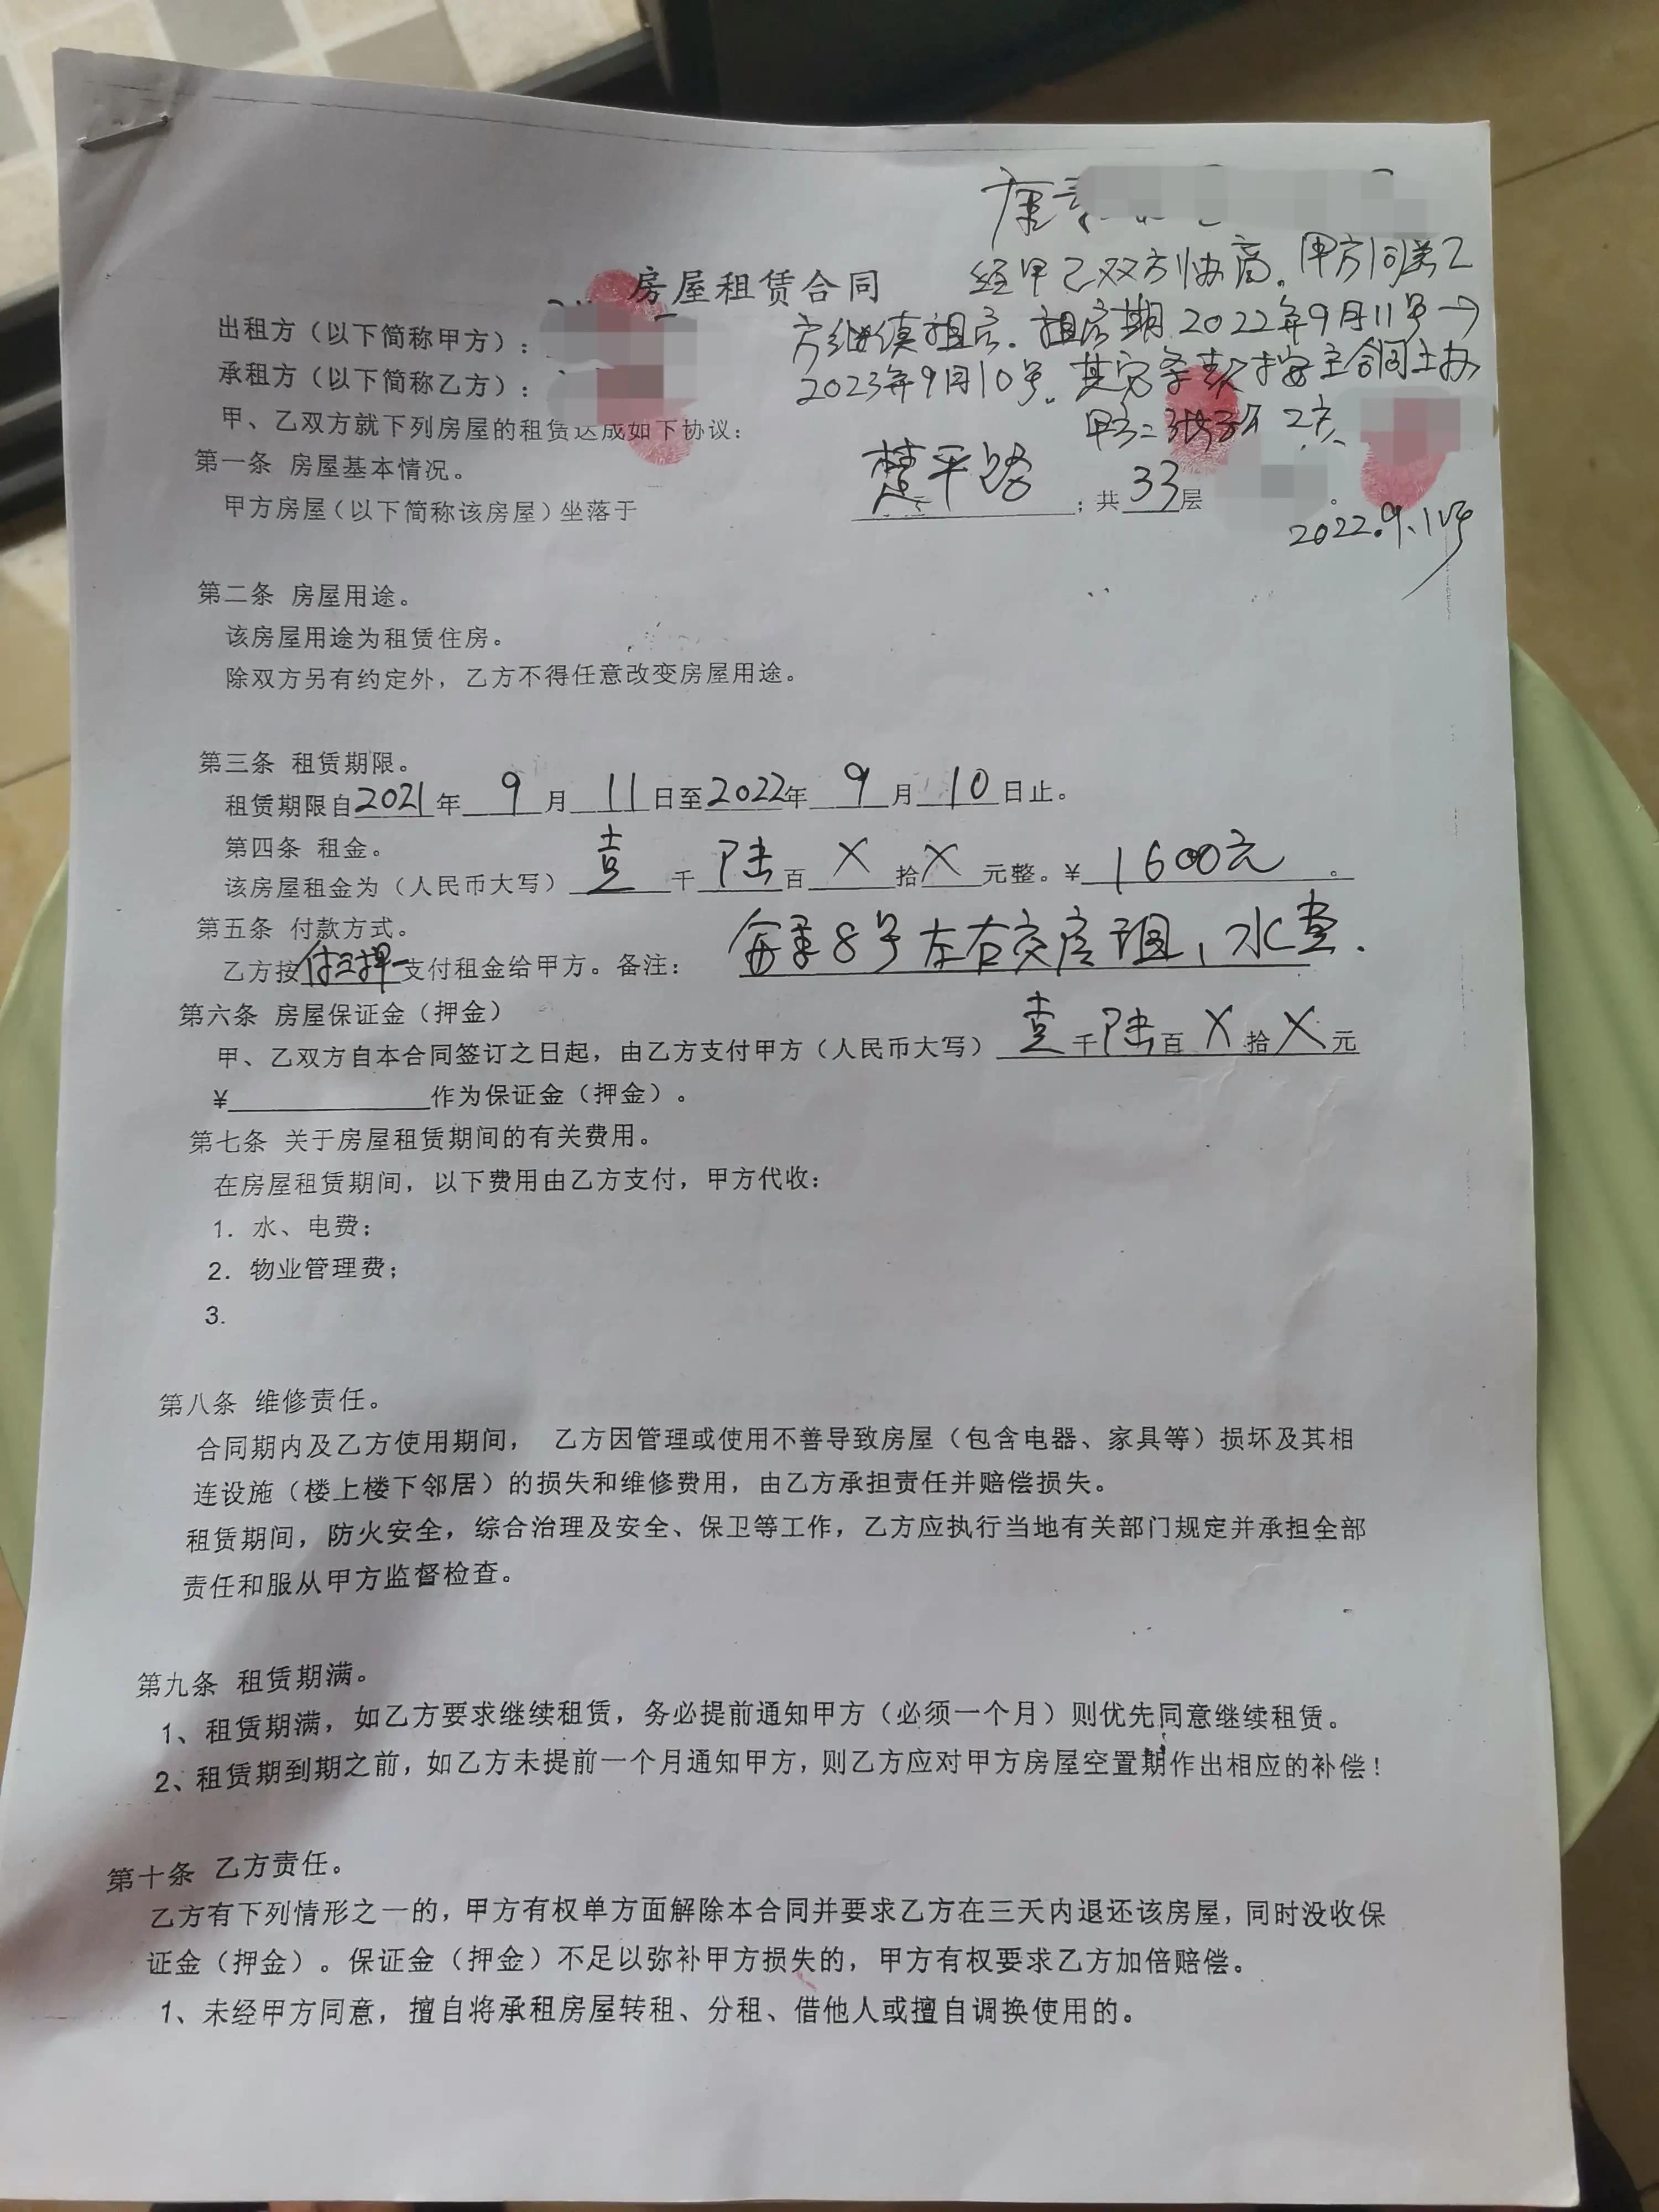 经甲乙双方协商。甲方同意乙
房屋租赁合同
方继续租房.租房期2022年9月11号→
出租方(以下简称甲方):
2023年9月10号。其它条款按主合同上办
承租方(以下简称乙方):
甲方: 乙方、
甲、乙双方就下列房屋的租赁达成如下协议:
第一条 房屋基本情况。
甲方房屋(以下简称该房屋)坐落于 楚平路;共33层
2022.9.
第二条 房屋用途。
该房屋用途为租赁住房。
除双方另有约定外,乙方不得任意改变房屋用途。
第三条 租赁期限。
租赁期限自2021年9月11日至2022年9月10日止。
第四条 租金。
该房屋租金为(人民币大写)壹千陆百X拾X元整。¥1600元。
第五条 付款方式。
乙方按付三押一支付租金给甲方。备注:每季8号左右交房租,水费.
第六条 房屋保证金(押金)
甲、乙双方自本合同签订之日起,由乙方支付甲方(人民币大写)壹千陆百X拾X元
¥作为保证金(押金)。
第七条 关于房屋租赁期间的有关费用。
在房屋租赁期间,以下费用由乙方支付,甲方代收:
1. 水、电费;
2. 物业管理费;
3.
第八条 维修责任。
合同期内及乙方使用期间, 乙方因管理或使用不善导致房屋(包含电器、家具等)损坏及其相
连设施(楼上楼下邻居)的损失和维修费用,由乙方承担责任并赔偿损失。
租赁期间,防火安全,综合治理及安全、保卫等工作,乙方应执行当地有关部门规定并承担全部
责任和服从甲方监督检查。
第九条 租赁期满。
1、租赁期满,如乙方要求继续租赁,务必提前通知甲方(必须一个月)则优先同意继续租赁。
2、租赁期到期之前,如乙方未提前一个月通知甲方,则乙方应对甲方房屋空置期作出相应的补偿!
第十条 乙方责任。
乙方有下列情形之一的,甲方有权单方面解除本合同并要求乙方在三天内退还该房屋,同时没收保
证金(押金)。保证金(押金)不足以弥补甲方损失的,甲方有权要求乙方加倍赔偿。
1、未经甲方同意,擅自将承租房屋转租、分租、借他人或擅自调换使用的。